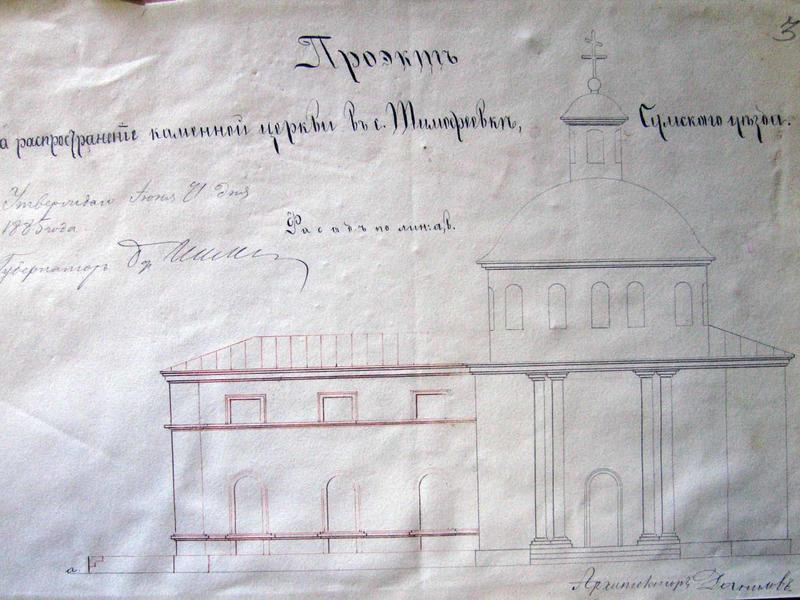 3
Проэктъ
а распространеніе каменной церкви въ с. Тимофеевкѣ, Сумского уѣзда.
Утверждаю Іюня 21 дня
1885 года.
Губернаторъ
Фасадъ по лин: а, в.
а
Архитекторъ